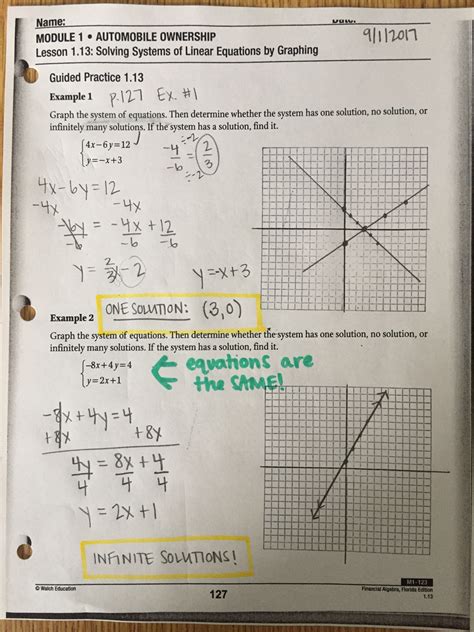 Name:
MODULE 1 • AUTOMOBILE OWNERSHIP
9/1/2017
Lesson 1.13: Solving Systems of Linear Equations by Graphing
Guided Practice 1.13
Example 1 p.127 Ex. #1
Graph the system of equations. Then determine whether the system has one solution, no solution, or
infinitely many solutions. If the system has a solution, find it.
4x−6y=12
y=−x+3
-4/-6 ÷-2/÷-2 = 2/3
4x-6y=12
-4x -4x
-6y/-6 = -4x/-6 + 12/-6
y = 2/3x - 2 y=-x+3
ONE SOLUTION: (3,0)
Example 2
Graph the system of equations. Then determine whether the system has one solution, no solution, or
infinitely many solutions. If the system has a solution, find it.
−8x+4y=4
y=2x+1
← equations are
the SAME!
-8x+4y=4
+8x +8x
4y/4 = 8x/4 + 4/4
y = 2x+1
INFINITE SOLUTIONS!
M1-123
© Walch Education
127
Financial Algebra, Florida Edition
1.13